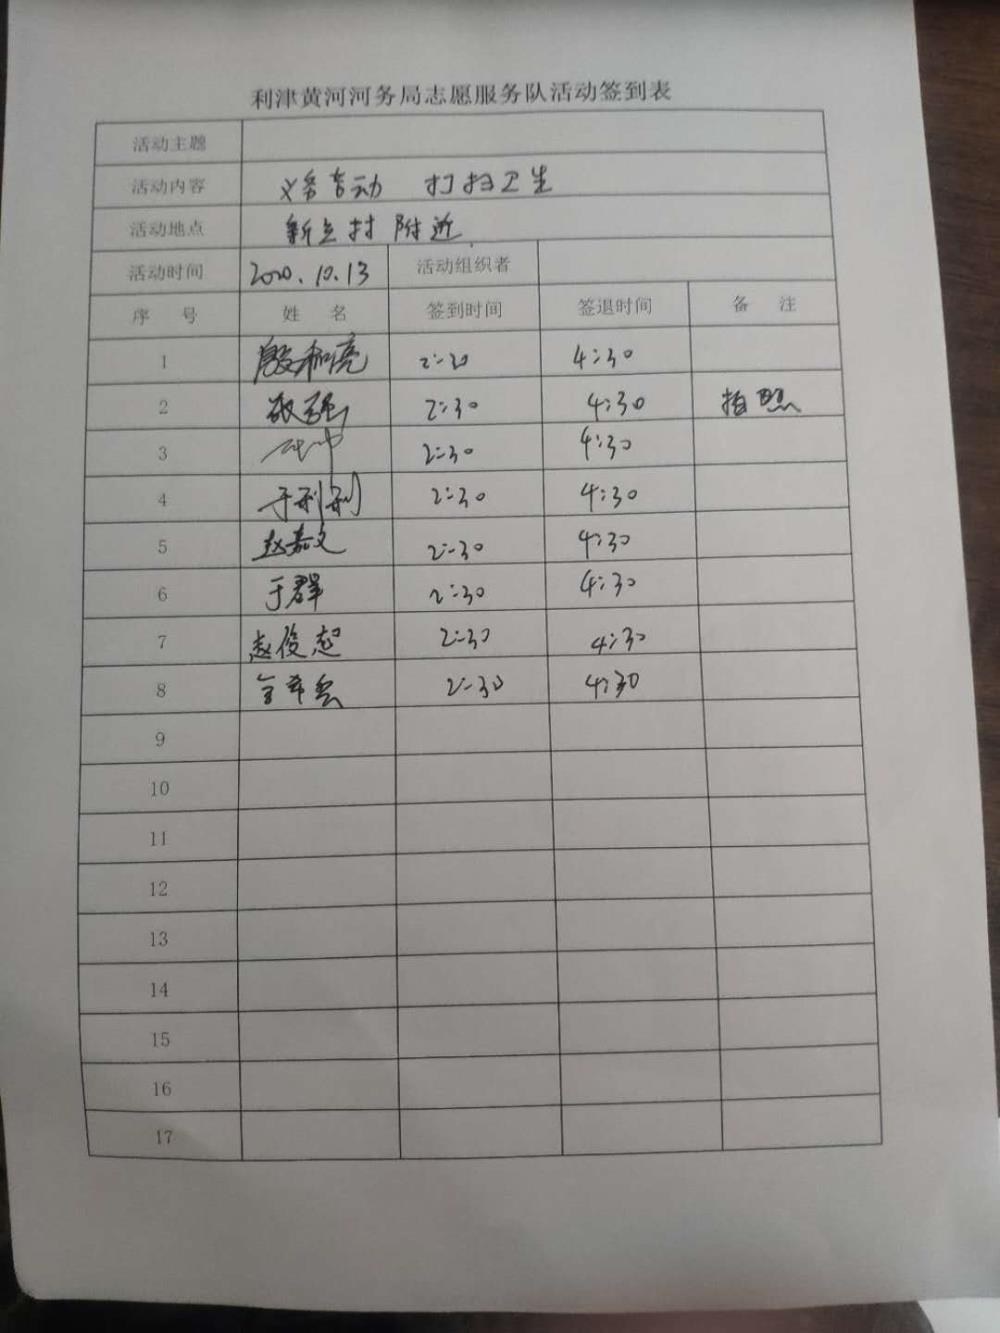 利津黄河河务局志愿服务队活动签到表
活动主题
活动内容 义务劳动 打扫卫生
活动地点 新立村 附近
活动时间 2020.10.13 活动组织者
序 号 姓 名 签到时间 签退时间 备 注
1 殷和亮 2:30 4:30
2 2:30 4:30 拍照
3 2:30 4:30
4 于利利 2:30 4:30
5 赵嘉文 2:30 4:30
6 于群 2:30 4:30
7 赵俊起 2:30 4:30
8 2:30 4:30
9
10
11
12
13
14
15
16
17